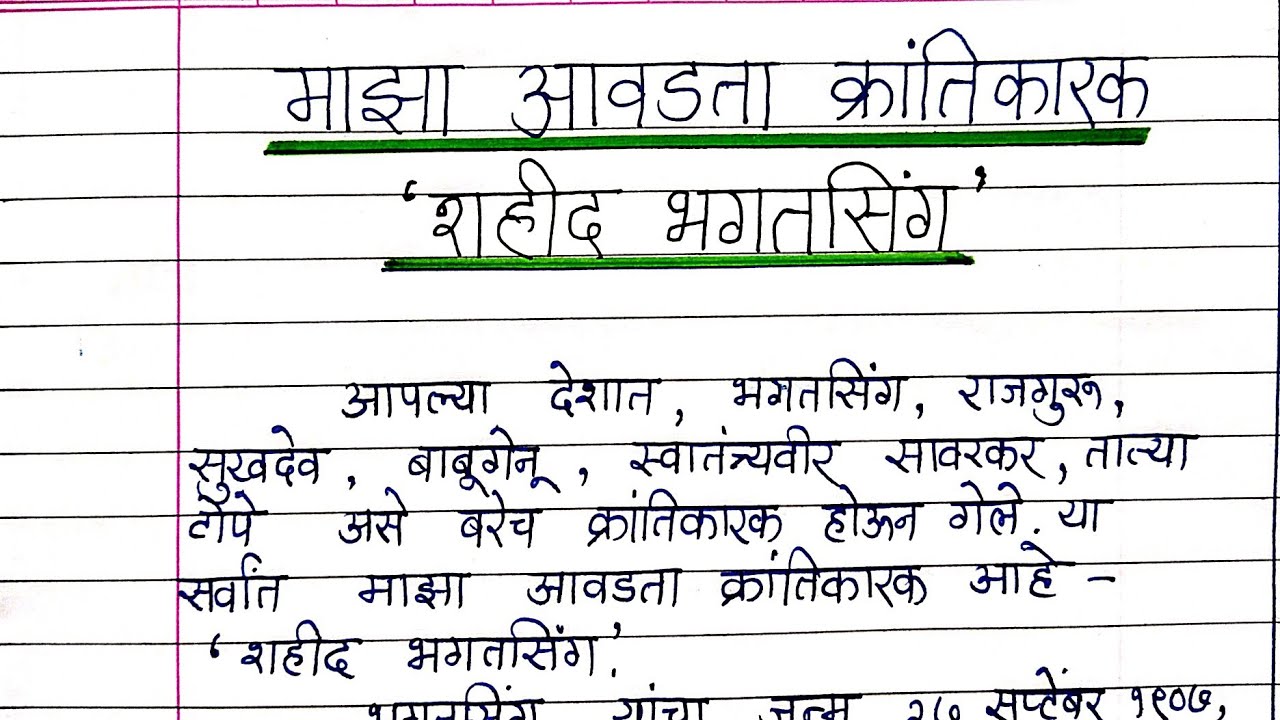 माझा आवडता क्रांतिकारक
‘शहीद भगतसिंग’
आपल्या देशात, भगतसिंग, राजगुरू,
सुखदेव, बाबूगेनू, स्वातंत्र्यवीर सावरकर, तात्या
टोपे असे बरेच क्रांतिकारक होऊन गेले. या
सर्वांत माझा आवडता क्रांतिकारक आहे –
‘शहीद भगतसिंग.’
भगतसिंग यांचा जन्म २७ सप्टेंबर १९०७,